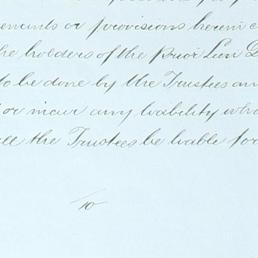 ements or provisions herein c
the holders of the Prior Lien D
to be done by the Trustees an
or incur any liability who
all the Trustees be liable for
10